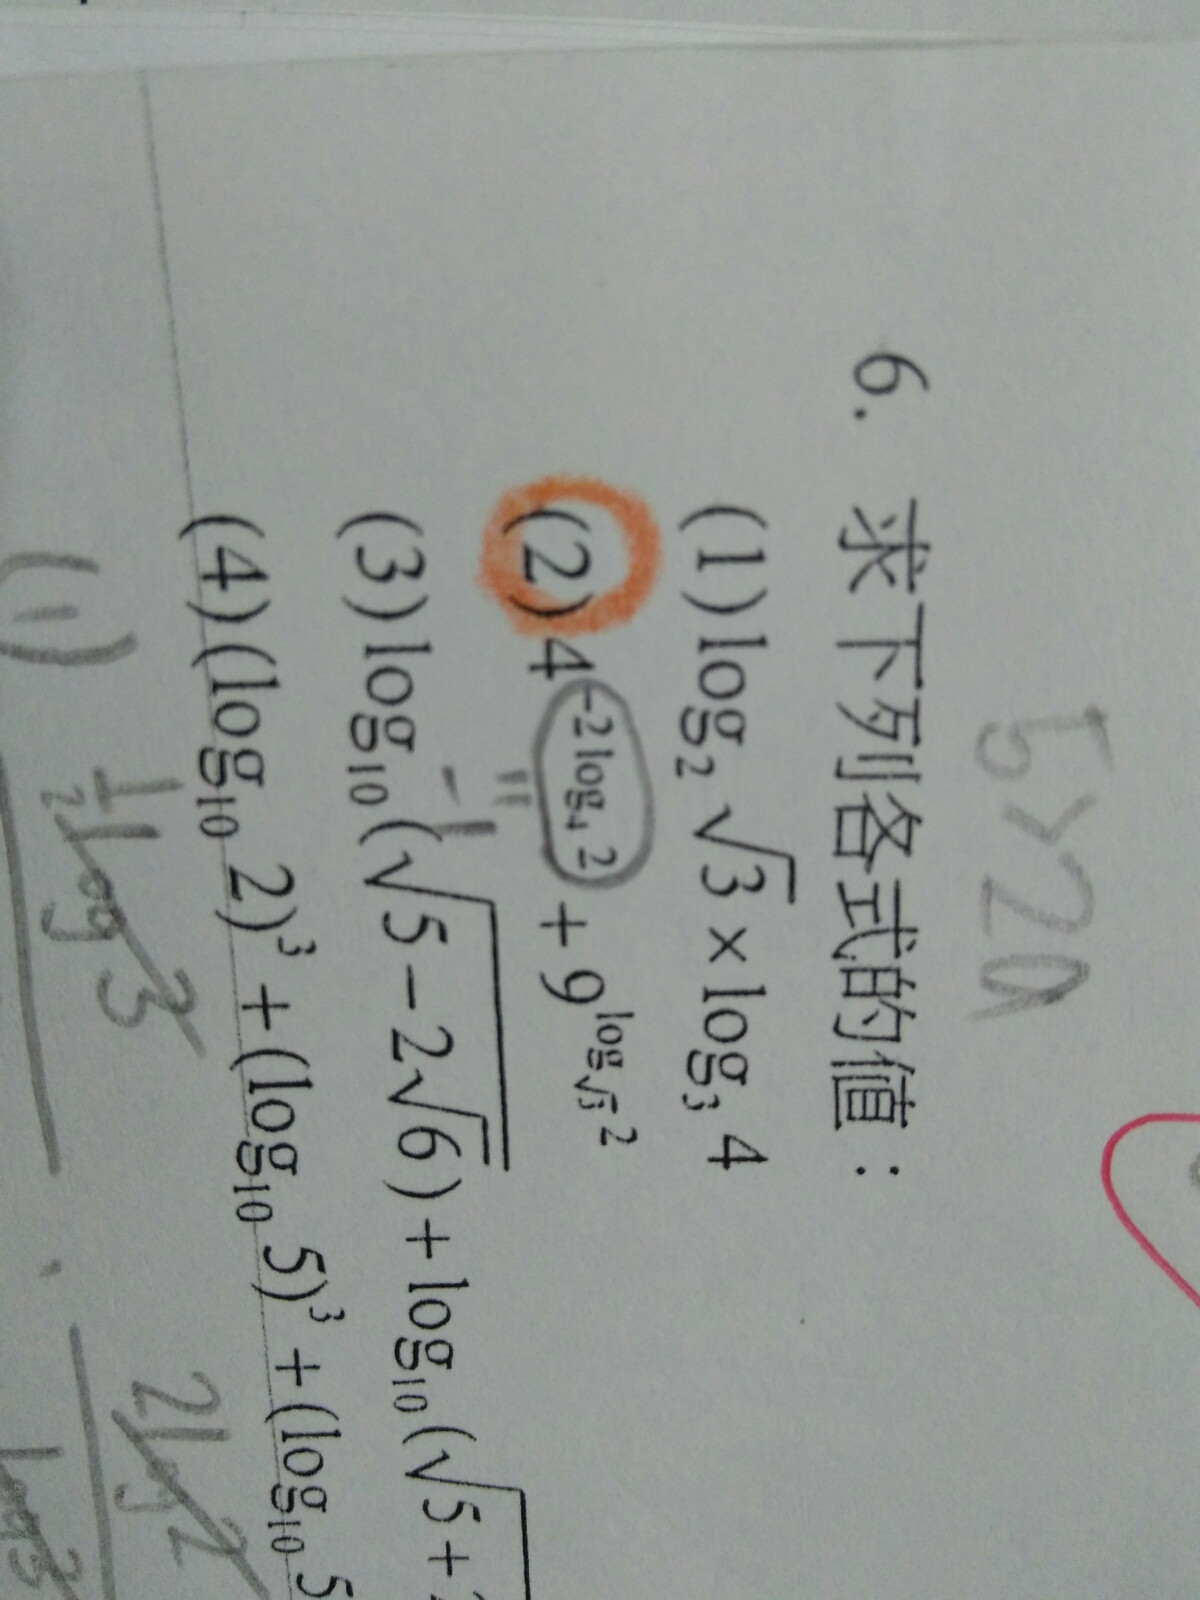 5>2a
6. 求下列各式的值：
(1) log₂ √3 × log₃ 4
(2) 4^(-2 log₄ 2) + 9^(log_√3 2)
= -1
(3) log₁₀(√(5-2√6)) + log₁₀(√(5+
(4) (log₁₀ 2)³ + (log₁₀ 5)³ + (log₁₀ 5
(1) ½ log 3 · 2 log 2
log 3